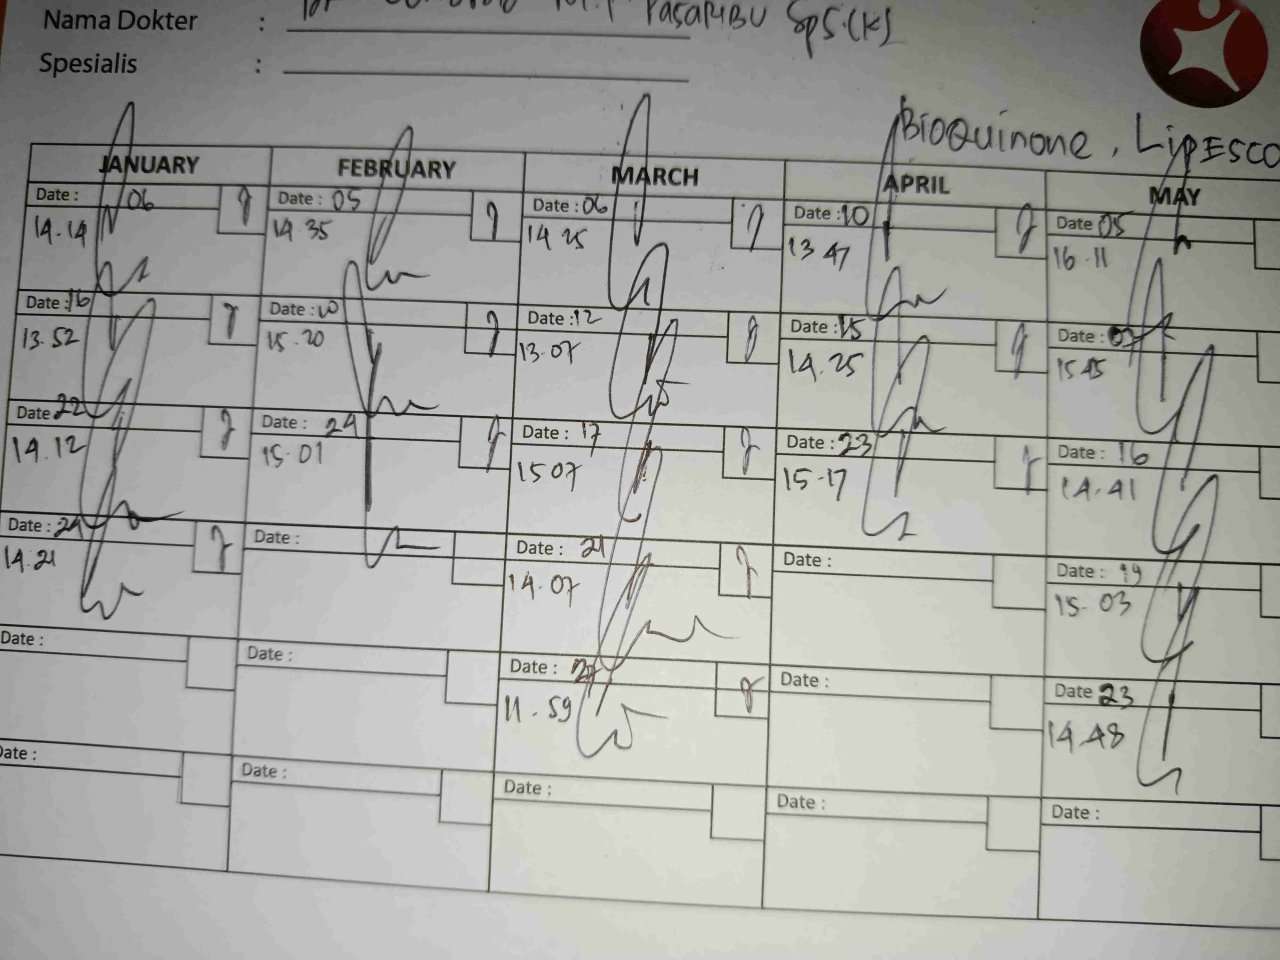 Nama Dokter : PASARIBU SpS.(K)
Spesialis :
BIOQUINONE, LIPESCO
JANUARY FEBRUARY MARCH APRIL MAY
Date : 06 Date : 05 Date : 06 Date : 10 Date 05
14.14 14 35 14 25 13 47 16.11
Date : 16 Date : 10 Date : 12 Date : 15 Date :
13.52 15.20 13.07 14.25 15 45
Date 22 Date : 24 Date : 17 Date : 23 Date : 16
14.12 15.01 15 07 15-17 14.41
Date : 24 Date : Date : 21 Date : Date : 19
14.21 14.07 15.03
Date : Date : Date : 27 Date : Date 23
11.59 14.48
Date : Date : Date : Date : Date :